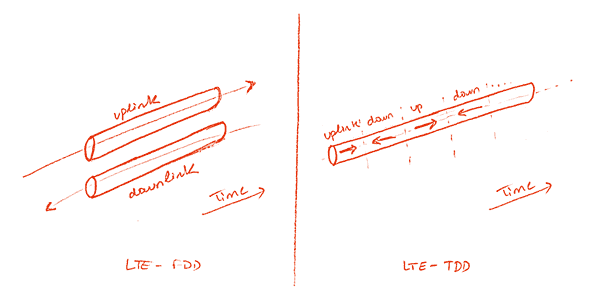 uplink
downlink
Time
LTE-FDD
uplink down up down
Time
LTE-TDD